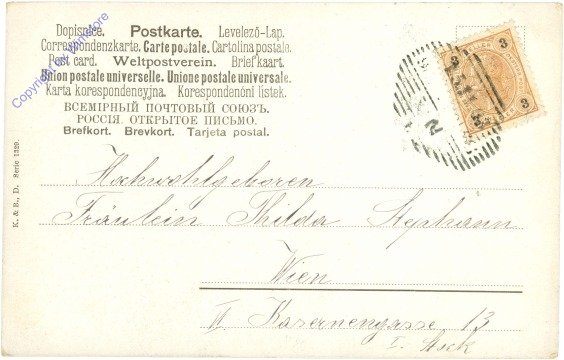 Dopisnice. Postkarte. Levelező-Lap.
Correspondenzkarte. Carte postale. Cartolina postale.
Post card. Weltpostverein. Briefkaart.
Union postale universelle. Unione postale universale.
Karta korespondencyjna. Korespondenční listek.
ВСЕМІРНЫЙ ПОЧТОВЫЙ СОЮЗЪ.
РОССІЯ. ОТКРЫТОЕ ПИСЬМО.
Brefkort. Brevkort. Tarjeta postal.
Copyright by
3
3
3
2
K. & B., D. Serie 1329.
Hochwohlgeboren
Fräulein Thilda Stephann
Wien
Kasernengasse 13
I. Stock